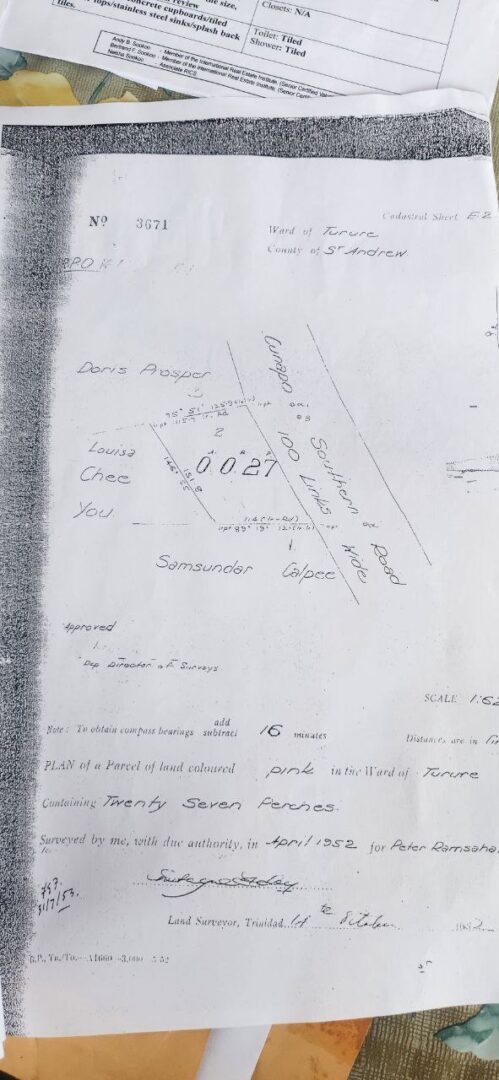 review
concrete cupboards/tiled
tops/stainless steel sinks/splash back
tiles.
the size,
Closets: N/A
Toilet: Tiled
Shower: Tiled
Andy B. Sookoo - Member of the International Real Estate Institute, (Senior Certified
Bertrand F. Sookoo - Member of the International Real Estate Institute, (Senior
Sookoo - Associate RICS
Cadastral Sheet E.2
Nº 3671
Ward of Turure
County of St Andrew
Doris Prosper
Cunapo Southern Road
100 Links Wide
2
Louisa
Chee
You
0 0.27
151.8
Samsundar Calpee
Approved
Dep Director of Surveys
SCALE 1:62
Note: To obtain compass bearings add subtract 16 minutes
Distances are in
PLAN of a Parcel of land coloured pink in the Ward of Turure
Containing Twenty Seven Perches.
Surveyed by me, with due authority, in April 1952 for Peter Ramsaha
31/7/53.
Land Surveyor, Trinidad, 1952